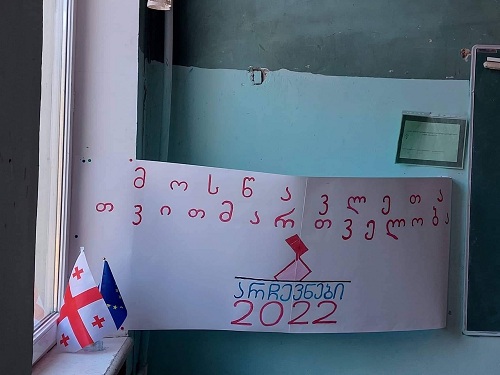 მოსწავლეთა
თვითმართველობა
არჩევნები
2022